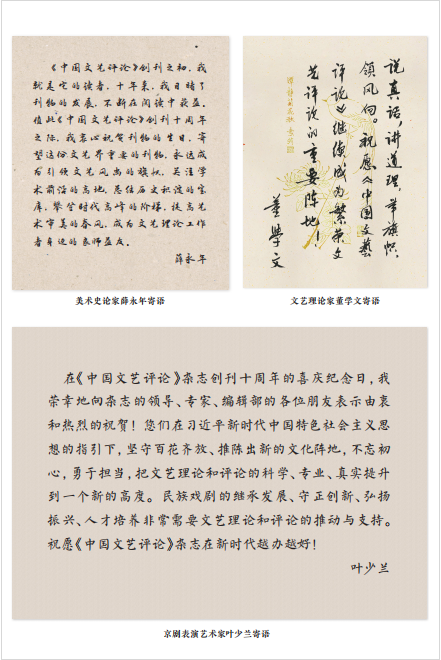 《中国文艺评论》创刊之初，我
就是它的读者，十年来，我目睹了
刊物的发展，不断在阅读中获益。
值此《中国文艺评论》创刊十周年
之际，我衷心祝贺刊物的生日，寄
望这份文艺界重要的刊物，永远成
为引领文艺风尚的旗帜，关注学
术前沿的高地，总结历史积淀的宝
库，攀登时代高峰的阶梯，提高艺
术审美的春风，成为文艺理论工作
者身边的良师益友。
薛永年
美术史论家薛永年寄语
说真话，讲道理，举旗帜，
领风向。祝愿《中国文藝
评论》继续成为繁荣文
艺评论的重要阵地！
董學文
文艺理论家董学文寄语
在《中国文艺评论》杂志创刊十周年的喜庆纪念日，我
荣幸地向杂志的领导、专家、编辑部的各位朋友表示由衷
和热烈的祝贺！您们在习近平新时代中国特色社会主义思
想的指引下，坚守百花齐放、推陈出新的文化阵地，不忘初
心，勇于担当，把文艺理论和评论的科学、专业、真实提升
到一个新的高度。民族戏剧的继承发展、守正创新、弘扬
振兴、人才培养非常需要文艺理论和评论的推动与支持。
祝愿《中国文艺评论》杂志在新时代越办越好！
叶少兰
京剧表演艺术家叶少兰寄语